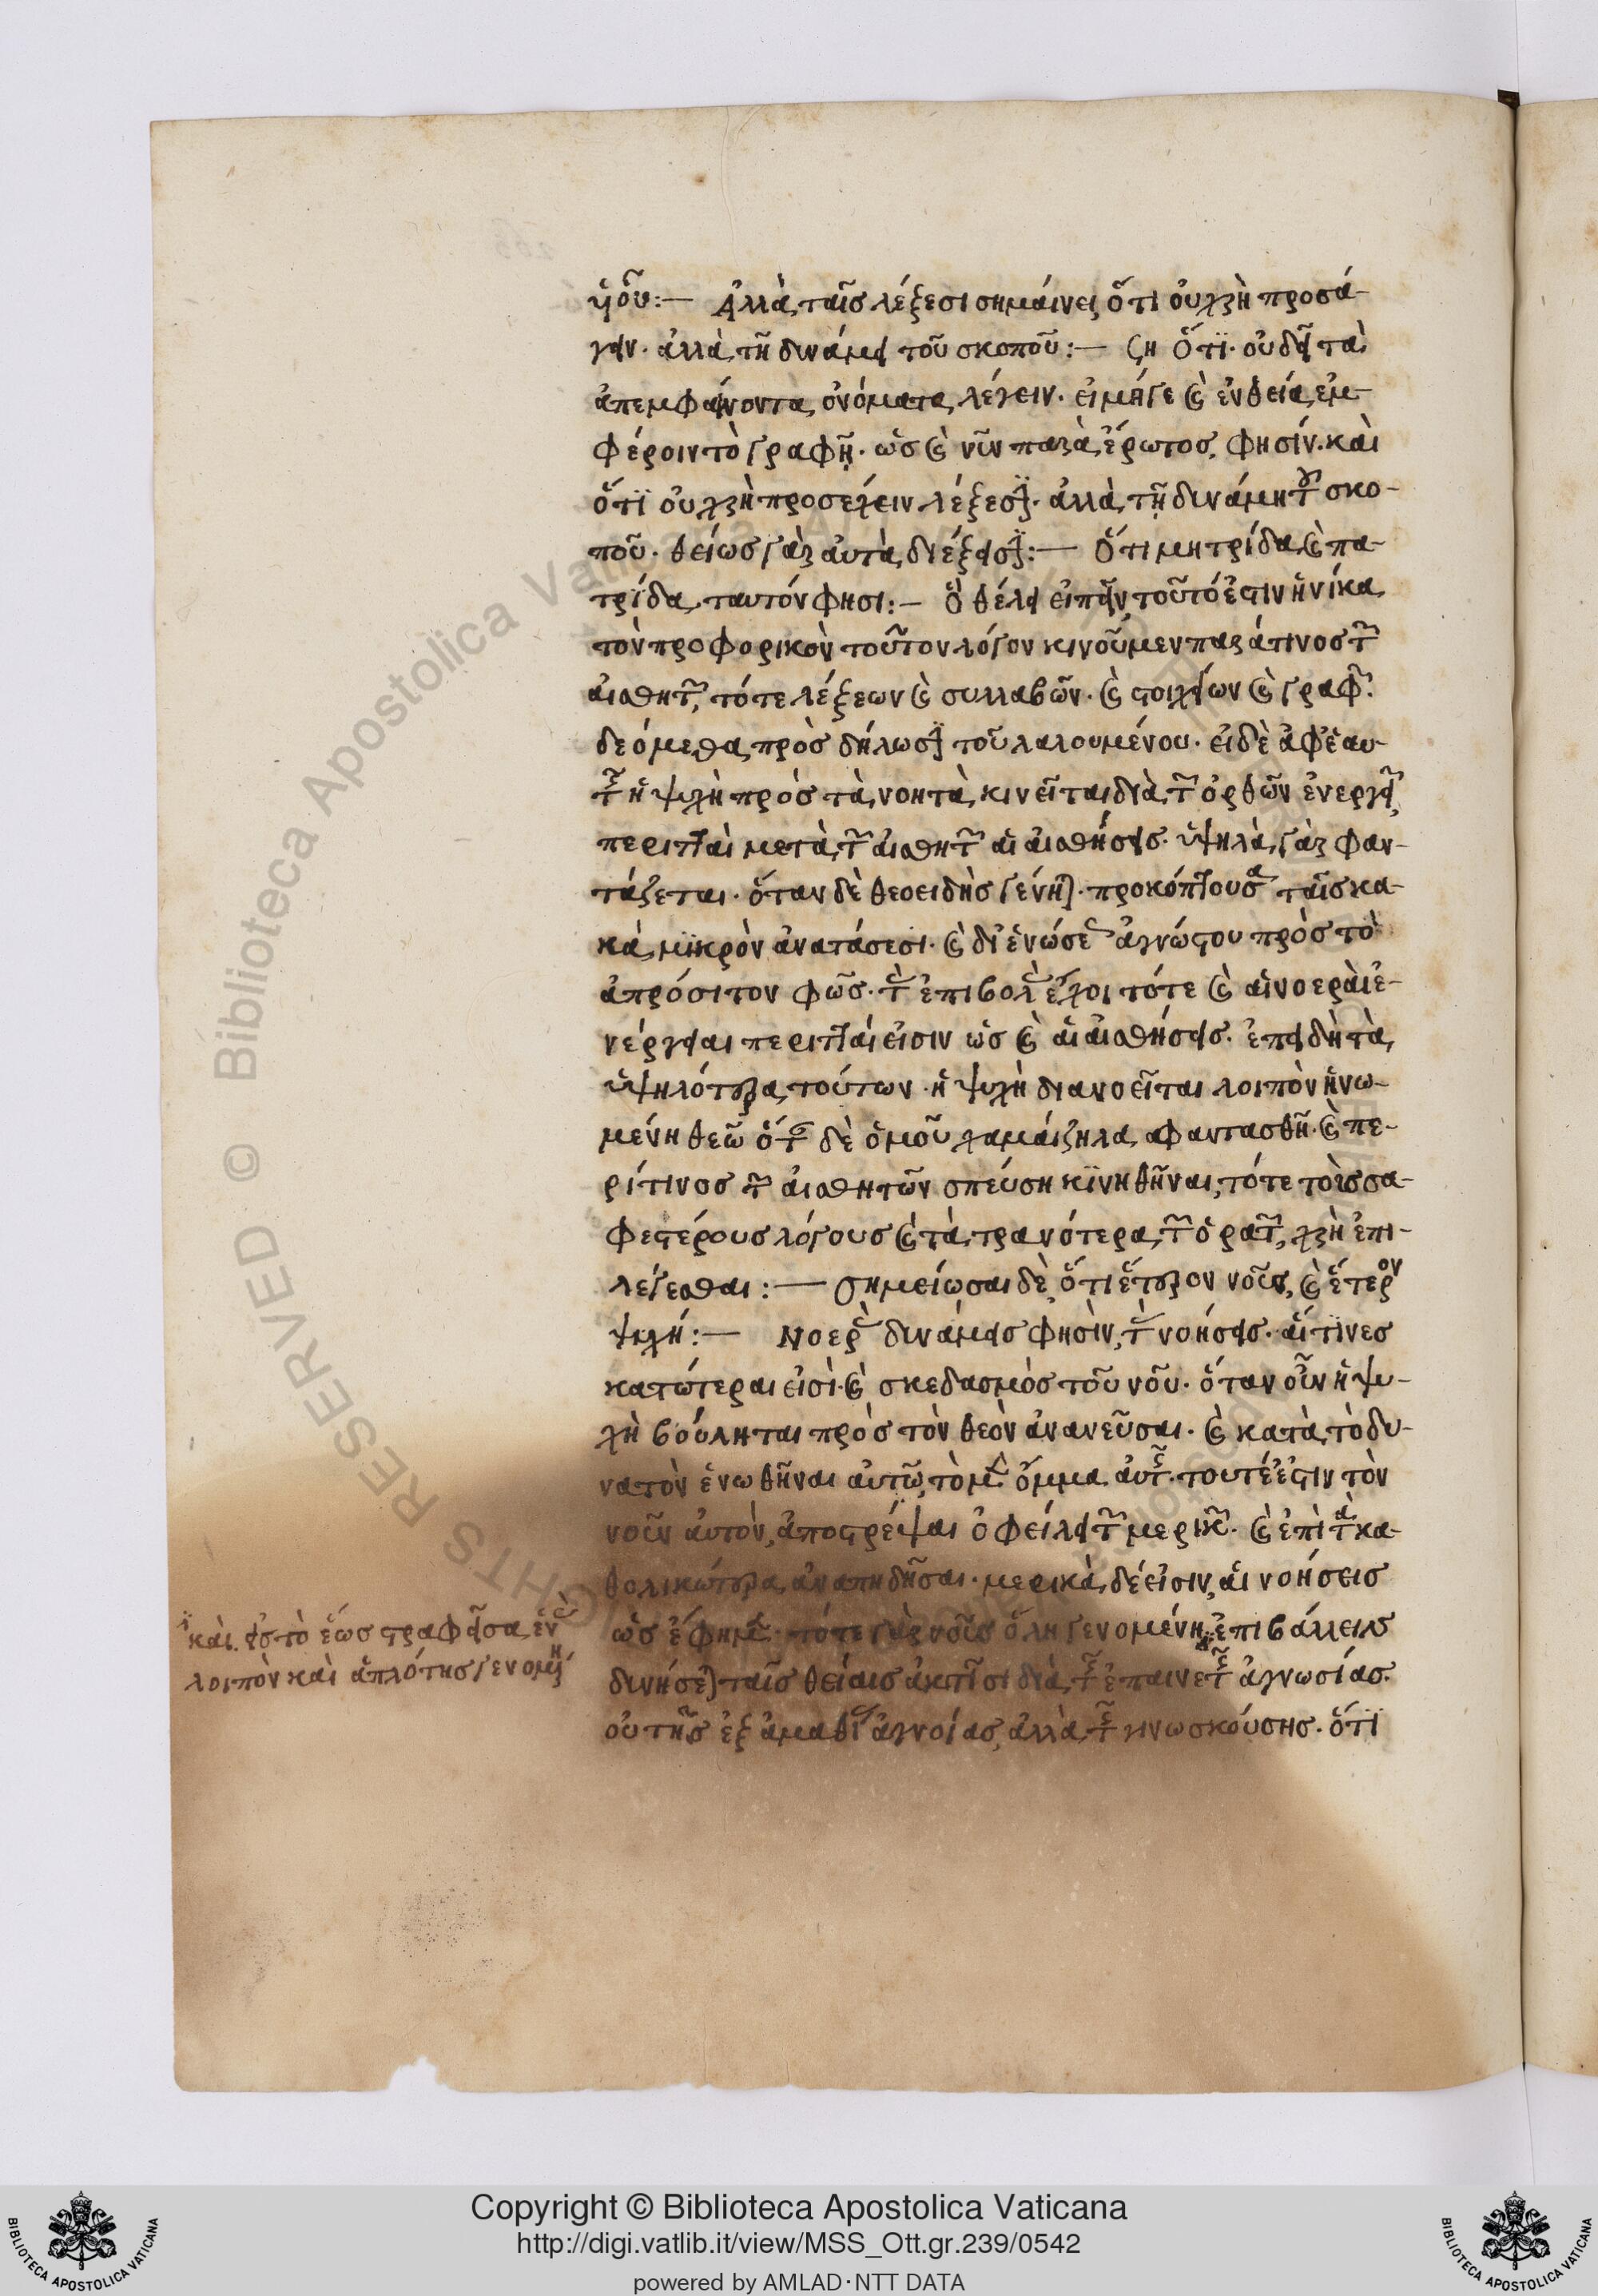 ἤουν:— Ἀλλὰ ταῖς λέξεσι σημαίνει, ὅτι οὐ χρὴ προσά-
γειν· ἀλλὰ τῇ δυνάμει τοῦ σκοποῦ:— ση Ὅτι οὐ δεῖ τὰ
ἀπεμφαίνοντα ὀνόματα λέγειν· εἰ μήγε καὶ ἐν θεία ἐμ-
φέροιντο γραφῇ· ὡς καὶ νῦν παρὰ ἔρωτος, φησίν· καὶ
ὅτι οὐ χρὴ προσέχειν λέξεσιν· ἀλλὰ τῇ δυνάμη τοῦ σκο-
ποῦ· θείως γὰρ αὐτὰ διέξεισιν:— Ὅτι μητρίδα καὶ πα-
τρίδα ταυτόν φησι:— ὃ θέλει εἰπεῖν, τοῦτό ἐστιν ἡνίκα
τὸν προφορικὸν τοῦτον λόγον κινοῦμεν παρά τινος τῶν
αἰσθητῶν, τότε λέξεων καὶ συλλαβῶν· καὶ στοιχείων καὶ γραφῶν
δεόμεθα πρὸς δήλωσιν τοῦ λαλουμένου· εἰ δὲ ἀφ' ἑαυ-
τῆς ἡ ψυχὴ πρὸς τὰ νοητὰ κινεῖται διὰ τῶν ὀρθῶν ἐνεργειῶν,
περιτταὶ μετὰ τῶν αἰσθητῶν αἱ αἰσθήσεις· ὑψηλὰ γὰρ φαν-
τάζεται· ὅταν δὲ θεοειδὴς γένηται· προκόπτουσα ταῖς κα-
κὰ μικρὸν ἀνατάσεσι· καὶ δι' ἑνώσεως ἀγνώστου πρὸς τὸ
ἀπρόσιτον φῶς· τὰς ἐπιβολὰς ἔχοι τότε καὶ αἱ νοεραὶ ἐ-
νέργειαι περιτταί εἰσιν ὡς καὶ αἱ αἰσθήσεις· ἐπειδὴ τὰ
ὑψηλότερα τούτων· ἡ ψυχὴ διανοεῖται λοιπὸν ἡνω-
μένη θεῶ ὅταν δὲ ὁμοῦ χαμαίζηλα φαντασθῆ· καὶ πε-
ρί τινος τῶν αἰσθητῶν σπεύση κινηθῆναι, τότε τοὺς σα-
φεστέρους λόγους καὶ τὰ τρανότερα τῶν ὁρατῶν, χρὴ ἐπι-
λέγεσθαι:— σημείωσαι δὲ, ὅτι ἕτερον νοῦς, καὶ ἕτερον
ψυχή:— Νοερὰς δυνάμεις φησὶν, τὰς νοήσεις· αἵτινες
κατώτεραι εἰσὶ· καὶ σκεδασμὸς τοῦ νοῦ· ὅταν οὖν ἡ ψυ-
χὴ βούληται πρὸς τὸν θεὸν ἀνανεῦσαι· καὶ κατὰ τὸ δυ-
νατὸν ἑνωθῆναι αὐτῶ, τὸ μὲν ὄμμα αὐτῆς· τουτέστιν τὸν
νοῦν αὐτὸν, ἀποστρέψαι ὀφείλει τῶν μερικῶν· καὶ ἐπὶ τὰ κα-
θολικώτερα ἀναπηδῆσαι· μερικὰ δέ εἰσιν, αἱ νοήσεις
ὡς ἔφημεν· τότε γὰρ νοῦς ὅλη γενομένη, ἐπιβάλλειν
δυνήσεται ταῖς θείαις ἀκτῖσι διὰ τῆς ἐπαινετῆς ἀγνωσίας·
οὐ τῆς ἐξ ἀμαθίας ἀγνοίας, ἀλλὰ τῆς γινωσκούσης· ὅτι
καὶ εἰς τὸ ἔσω στραφεῖσα ἑν
λοιπὸν καὶ ἁπλότης γενομένη
Copyright © Biblioteca Apostolica Vaticana
http://digi.vatlib.it/view/MSS_Ott.gr.239/0542
powered by AMLAD·NTT DATA